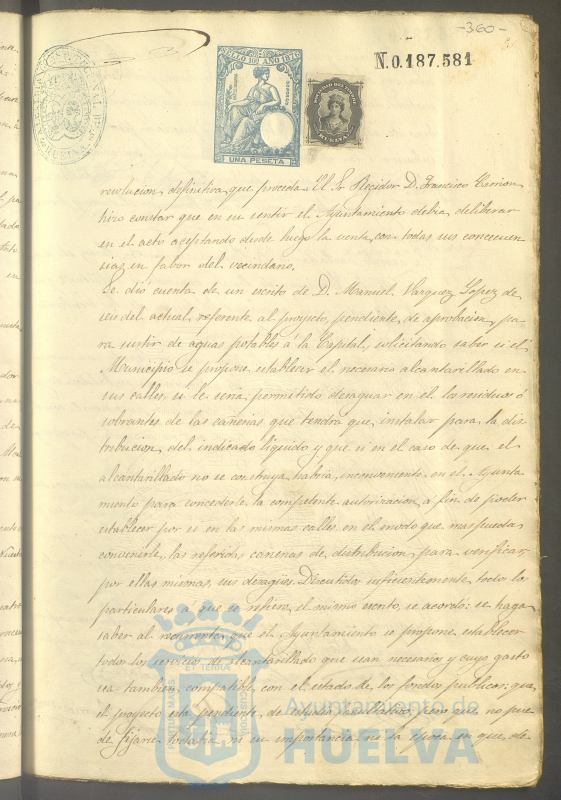 -360-
N.0.187.581
SELLO 10º AÑO 1876
UNA PESETA
resolucion definitiva que proceda. El Sr Regidor D. Francisco Carrion
hizo constar que en su sentir el Ayuntamiento debia deliberar
en el acto aceptando desde luego la venta con todas sus consecuen
sias en favor del vecindario.
Se dió cuenta de un escrito de D. Manuel Vazquez Lopez de
seis del actual, referente al proyecto, pendiente de aprobacion, pa-
ra surtir de aguas potables á la Capital, solicitando saber si el
Municipio se propone establecer el necesario alcantarillado en
sus calles, si le seria permitido desaguar en él los residuos ó
sobrantes de las cañerias que tendra que instalar para la dis
tribucion del indicado liquido y que si en el caso de que el
alcantarillado no se construya, habria inconveniente en el Ayunta
miento para concederle la competente autorizacion á fin de poder
establecer por si en las mismas calles en el modo que mas pueda
convenirle, las referidas cañerias de distribucion para verificar
por ellas mismas, sus desagües. Discutidos suficientemente todos los
particulares a que se refiere el mismo escrito, se acordó: se haga
saber al recurrente que el Ayuntamiento se propone establecer
todos los servicios de alcantarillado que sean necesarios y cuyo gasto
sea tambien compatible con el estado de los fondos publicos: que
el proyecto esta pendiente de estudio facultativo, por que no pue
de fijarse todavia ni su importancia ni la época en que de
Ayuntamiento de
HUELVA